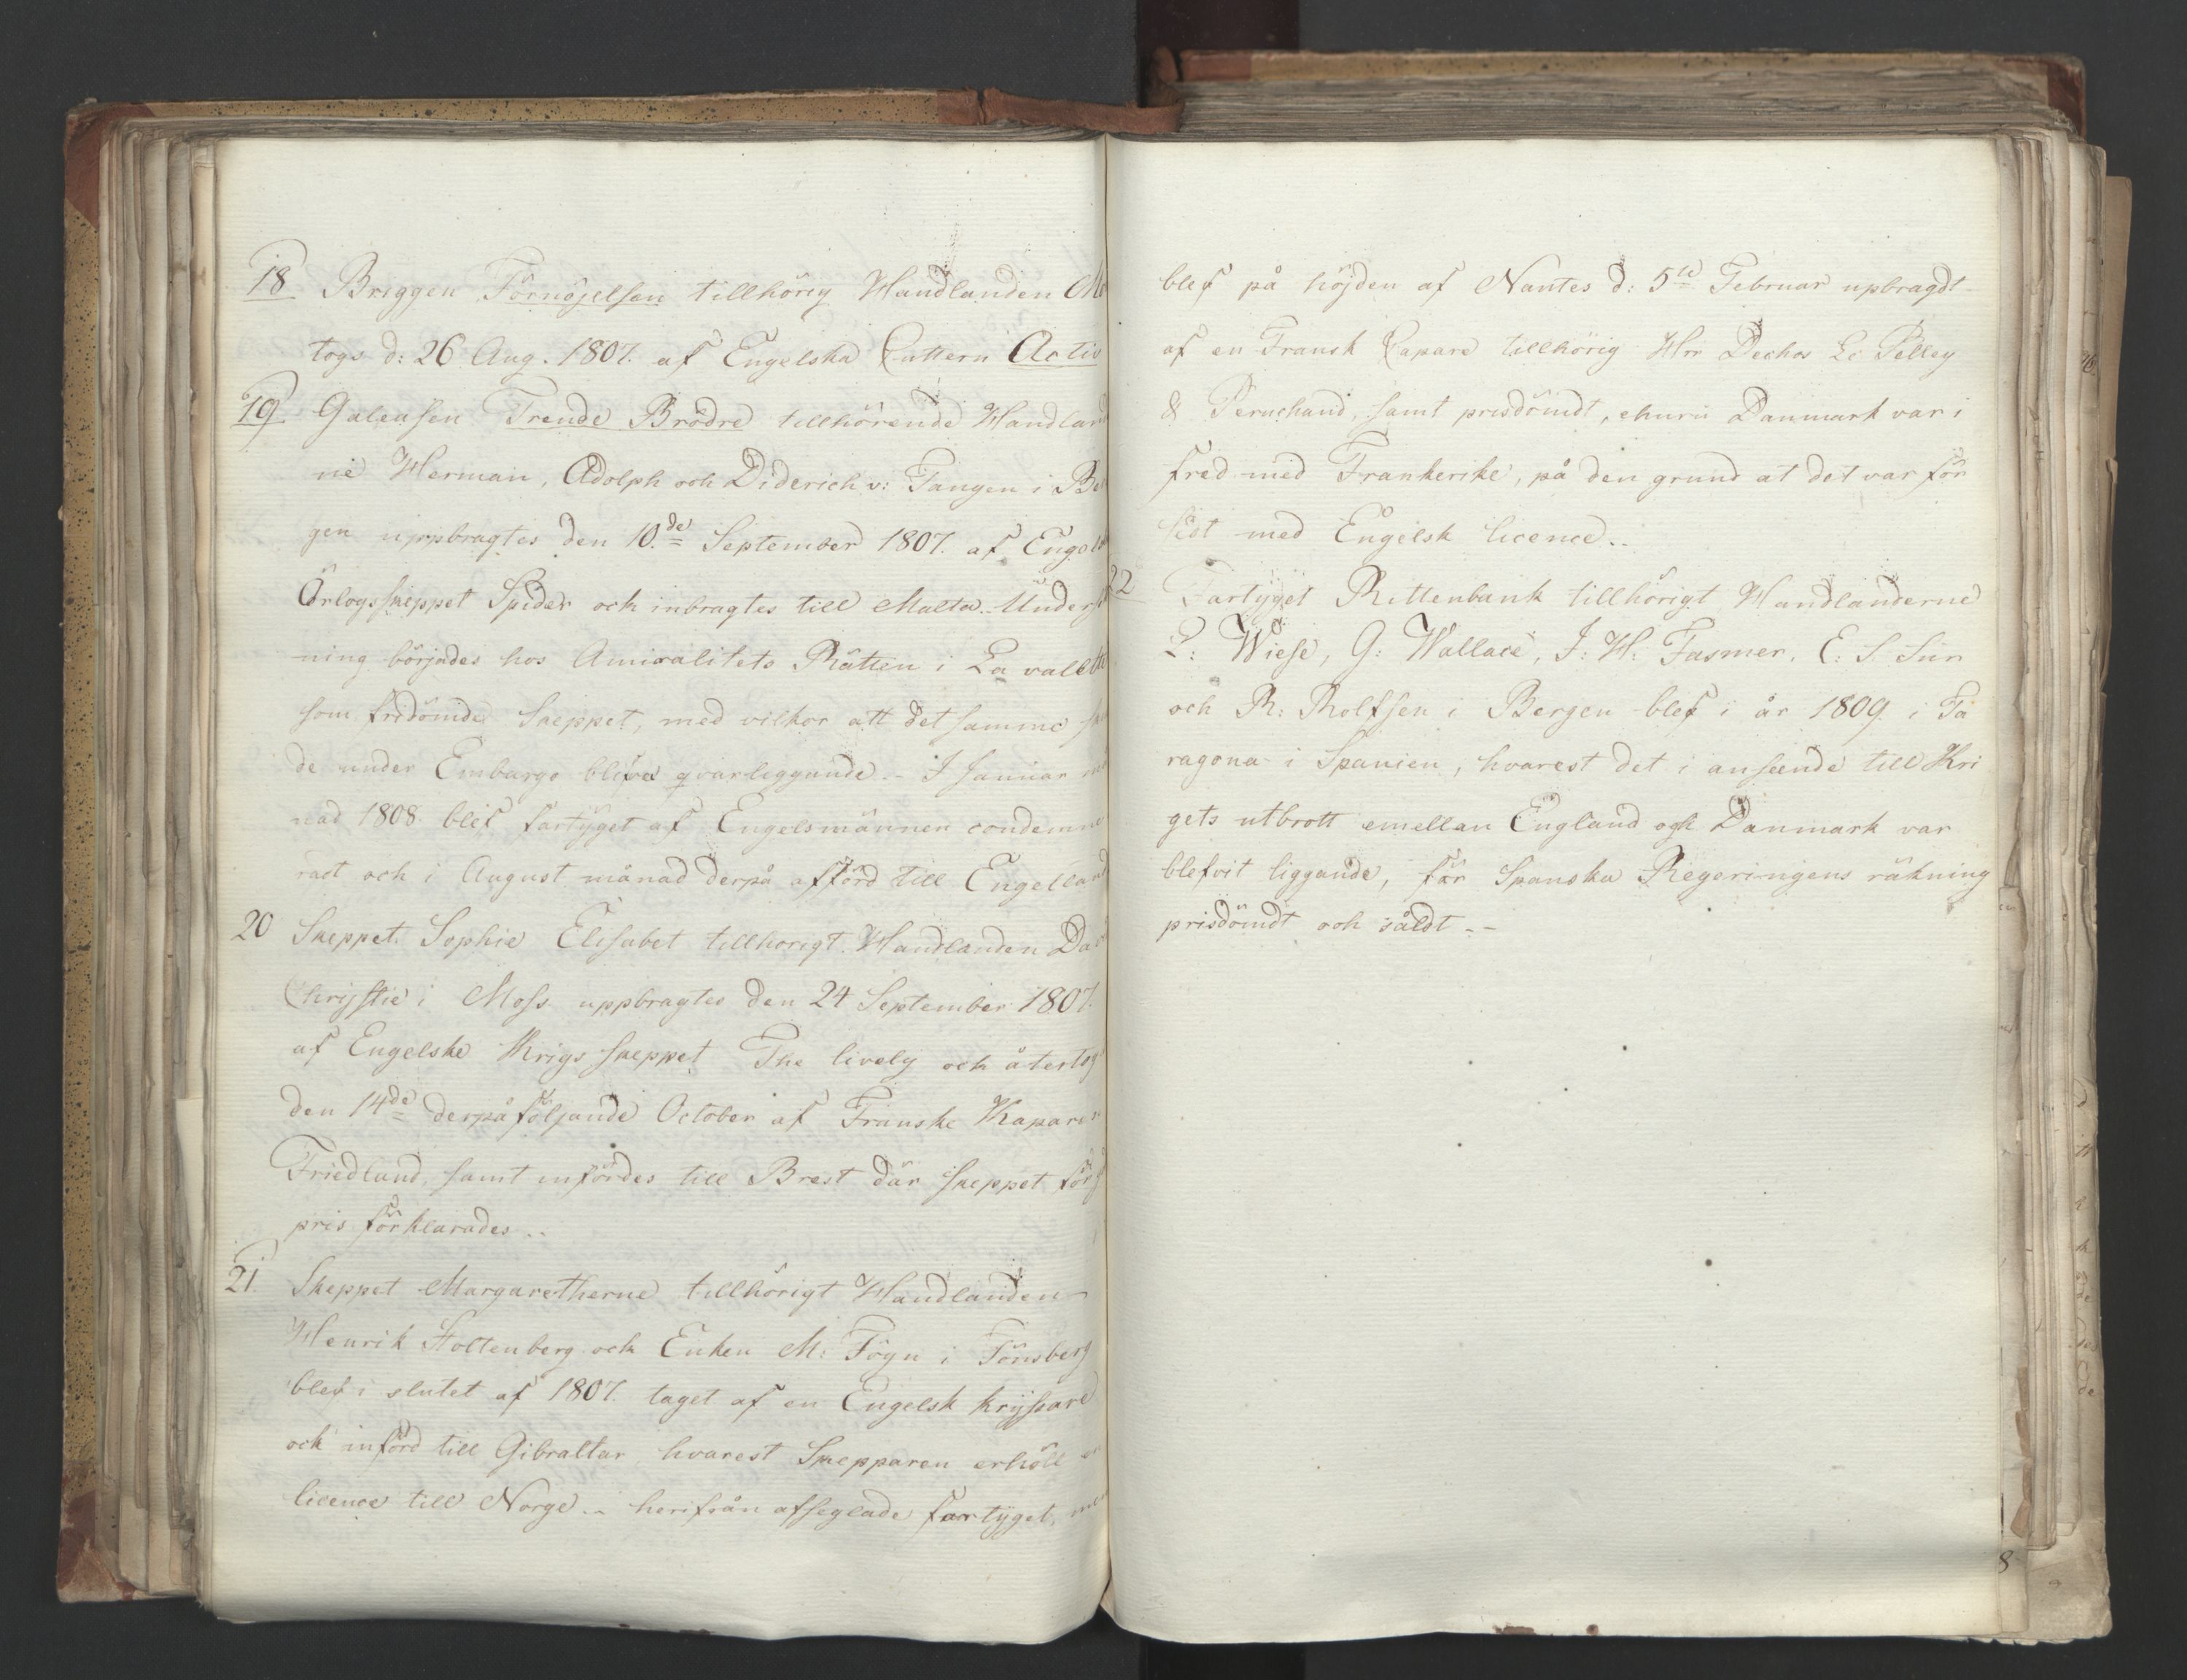 18 Briggen Förnöjelsen tillhörig Handlanden
togs d: 26 Aug. 1807. af Engelska Cuttern Activ
19 Galeasen Trende Brödre tillhörende Handlan
ne Herman, Adolph och Diderich v: Tangen i Ber
gen uppbragtes den 10.de September 1807. af Engels
Örlogsskeppet Spider och inbragtes till Malta. Unders
ning börjades hos Amiralitets Rätten i La valette
som fridömde Skeppet, med vilkor att det samme
de under Embargo blifva qvarliggande.- I Januar
nad 1808. blef fartyget af Engelsmännen condemne
radt och i August månad derpå afförd till Engelland
20 Skeppet Sophie Elisabet tillhörigt Handlanden
Chrisstie i Moss uppbragtes den 24 September 1807.
af Engelske Krigs skeppet The lively och återtog
den 14de derpåföljande October af Franske Kaparen
Friedland, samt infördes till Brest där skeppet för
pris förklarades..
21. Skeppet Margaretherne tillhörigt Handlanden
Henrik Foltenberg och Enken M: Föyn i Tönsberg
blef i slutet af 1807. taget af en Engelsk kryssare
och införd till Gibraltar, hvarest Skepparen erhöll en
licence till Norge.- herifrån afseglade fartyget, men
blef på höjden af Nantes d: 5te Februar upbragdt
af en Fransk Capare tillhörig Hrr Dechos Le Pelley
& Peruchaud, samt prisdömdt, ehuru Danmark var i
fred med Frankerike, på den grund at det var för
sedt med Engelsk licence..
22 Fartyget Rittenbank tillhörigt Handlanderne
L: Wiese, G: Wallace, J: H: Fasmer, C: S. Sun
och R: Rolfsen i Bergen blef i år 1809. i Ta
ragona i Spanien, hvarest det i anseende till Kri
gets utbrott emellan England och Danmark var
blefvit liggande, för Spanska Regeringens räkning
prisdömdt och såldt.-